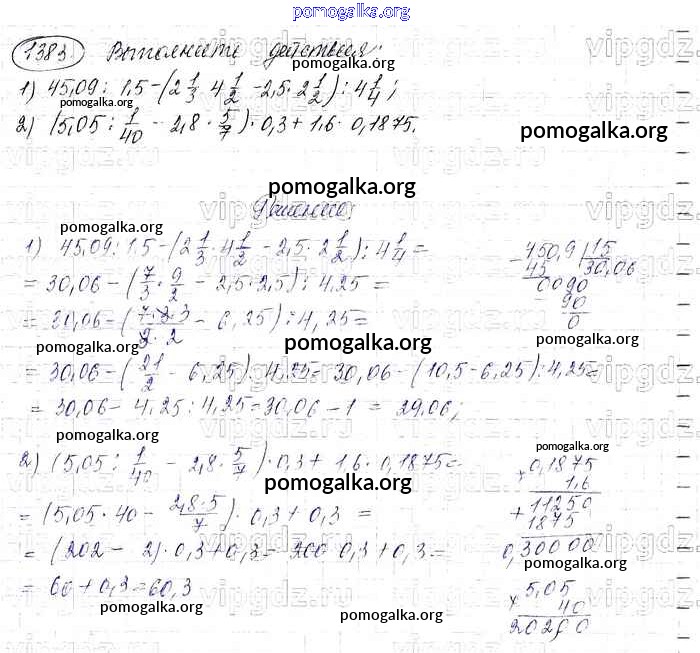 pomogalka.org
1383 Выполните действия:
1) 45,09 : 1,5 - (2 1/3 · 4 1/2 - 2,5 · 2 1/2) : 4 1/4;
pomogalka.org
2) (5,05 : 1/40 - 2,8 · 5/7) · 0,3 + 1,6 · 0,1875.
pomogalka.org
pomogalka.org
Решение:
pomogalka.org
1) 45,09 : 1,5 - (2 1/3 · 4 1/2 - 2,5 · 2 1/2) : 4 1/4 =
= 30,06 - (7/3 · 9/2 - 2,5 · 2,5) : 4,25 =
= 30,06 - (7·3·3/3·2 - 6,25) : 4,25 =
pomogalka.org pomogalka.org pomogalka.org
= 30,06 - (21/2 - 6,25) : 4,25 = 30,06 - (10,5 - 6,25) : 4,25 =
= 30,06 - 4,25 : 4,25 = 30,06 - 1 = 29,06;
450,9 | 15
45 30,06
0090
90
0
pomogalka.org
2) (5,05 : 1/40 - 2,8 · 5/7) · 0,3 + 1,6 · 0,1875 =
pomogalka.org pomogalka.org
= (5,05 · 40 - 2,8·5/7) · 0,3 + 0,3 =
= (202 - 2) · 0,3 + 0,3 = 200 · 0,3 + 0,3 =
pomogalka.org
= 60 + 0,3 = 60,3
pomogalka.org pomogalka.org
× 0,1875
1,6
+ 11250
1875
0,30000
pomogalka.org
× 5,05
40
20200
pomogalka.org